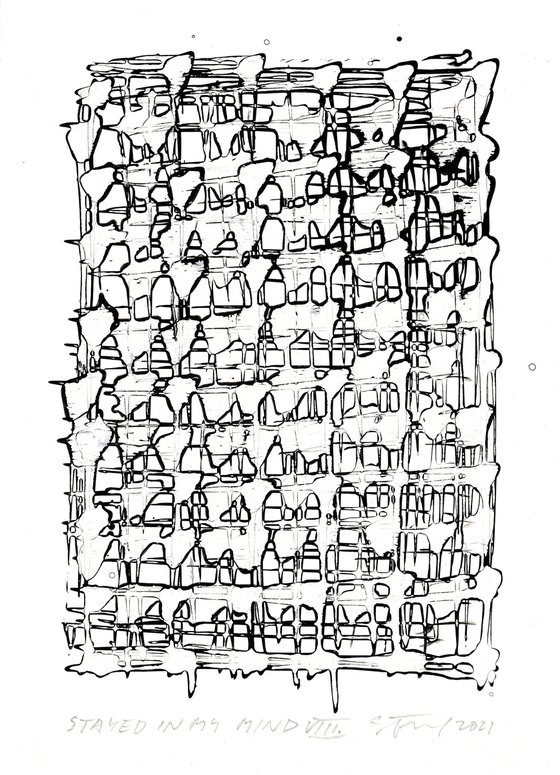 STAYED IN MY MIND VIII. 2021